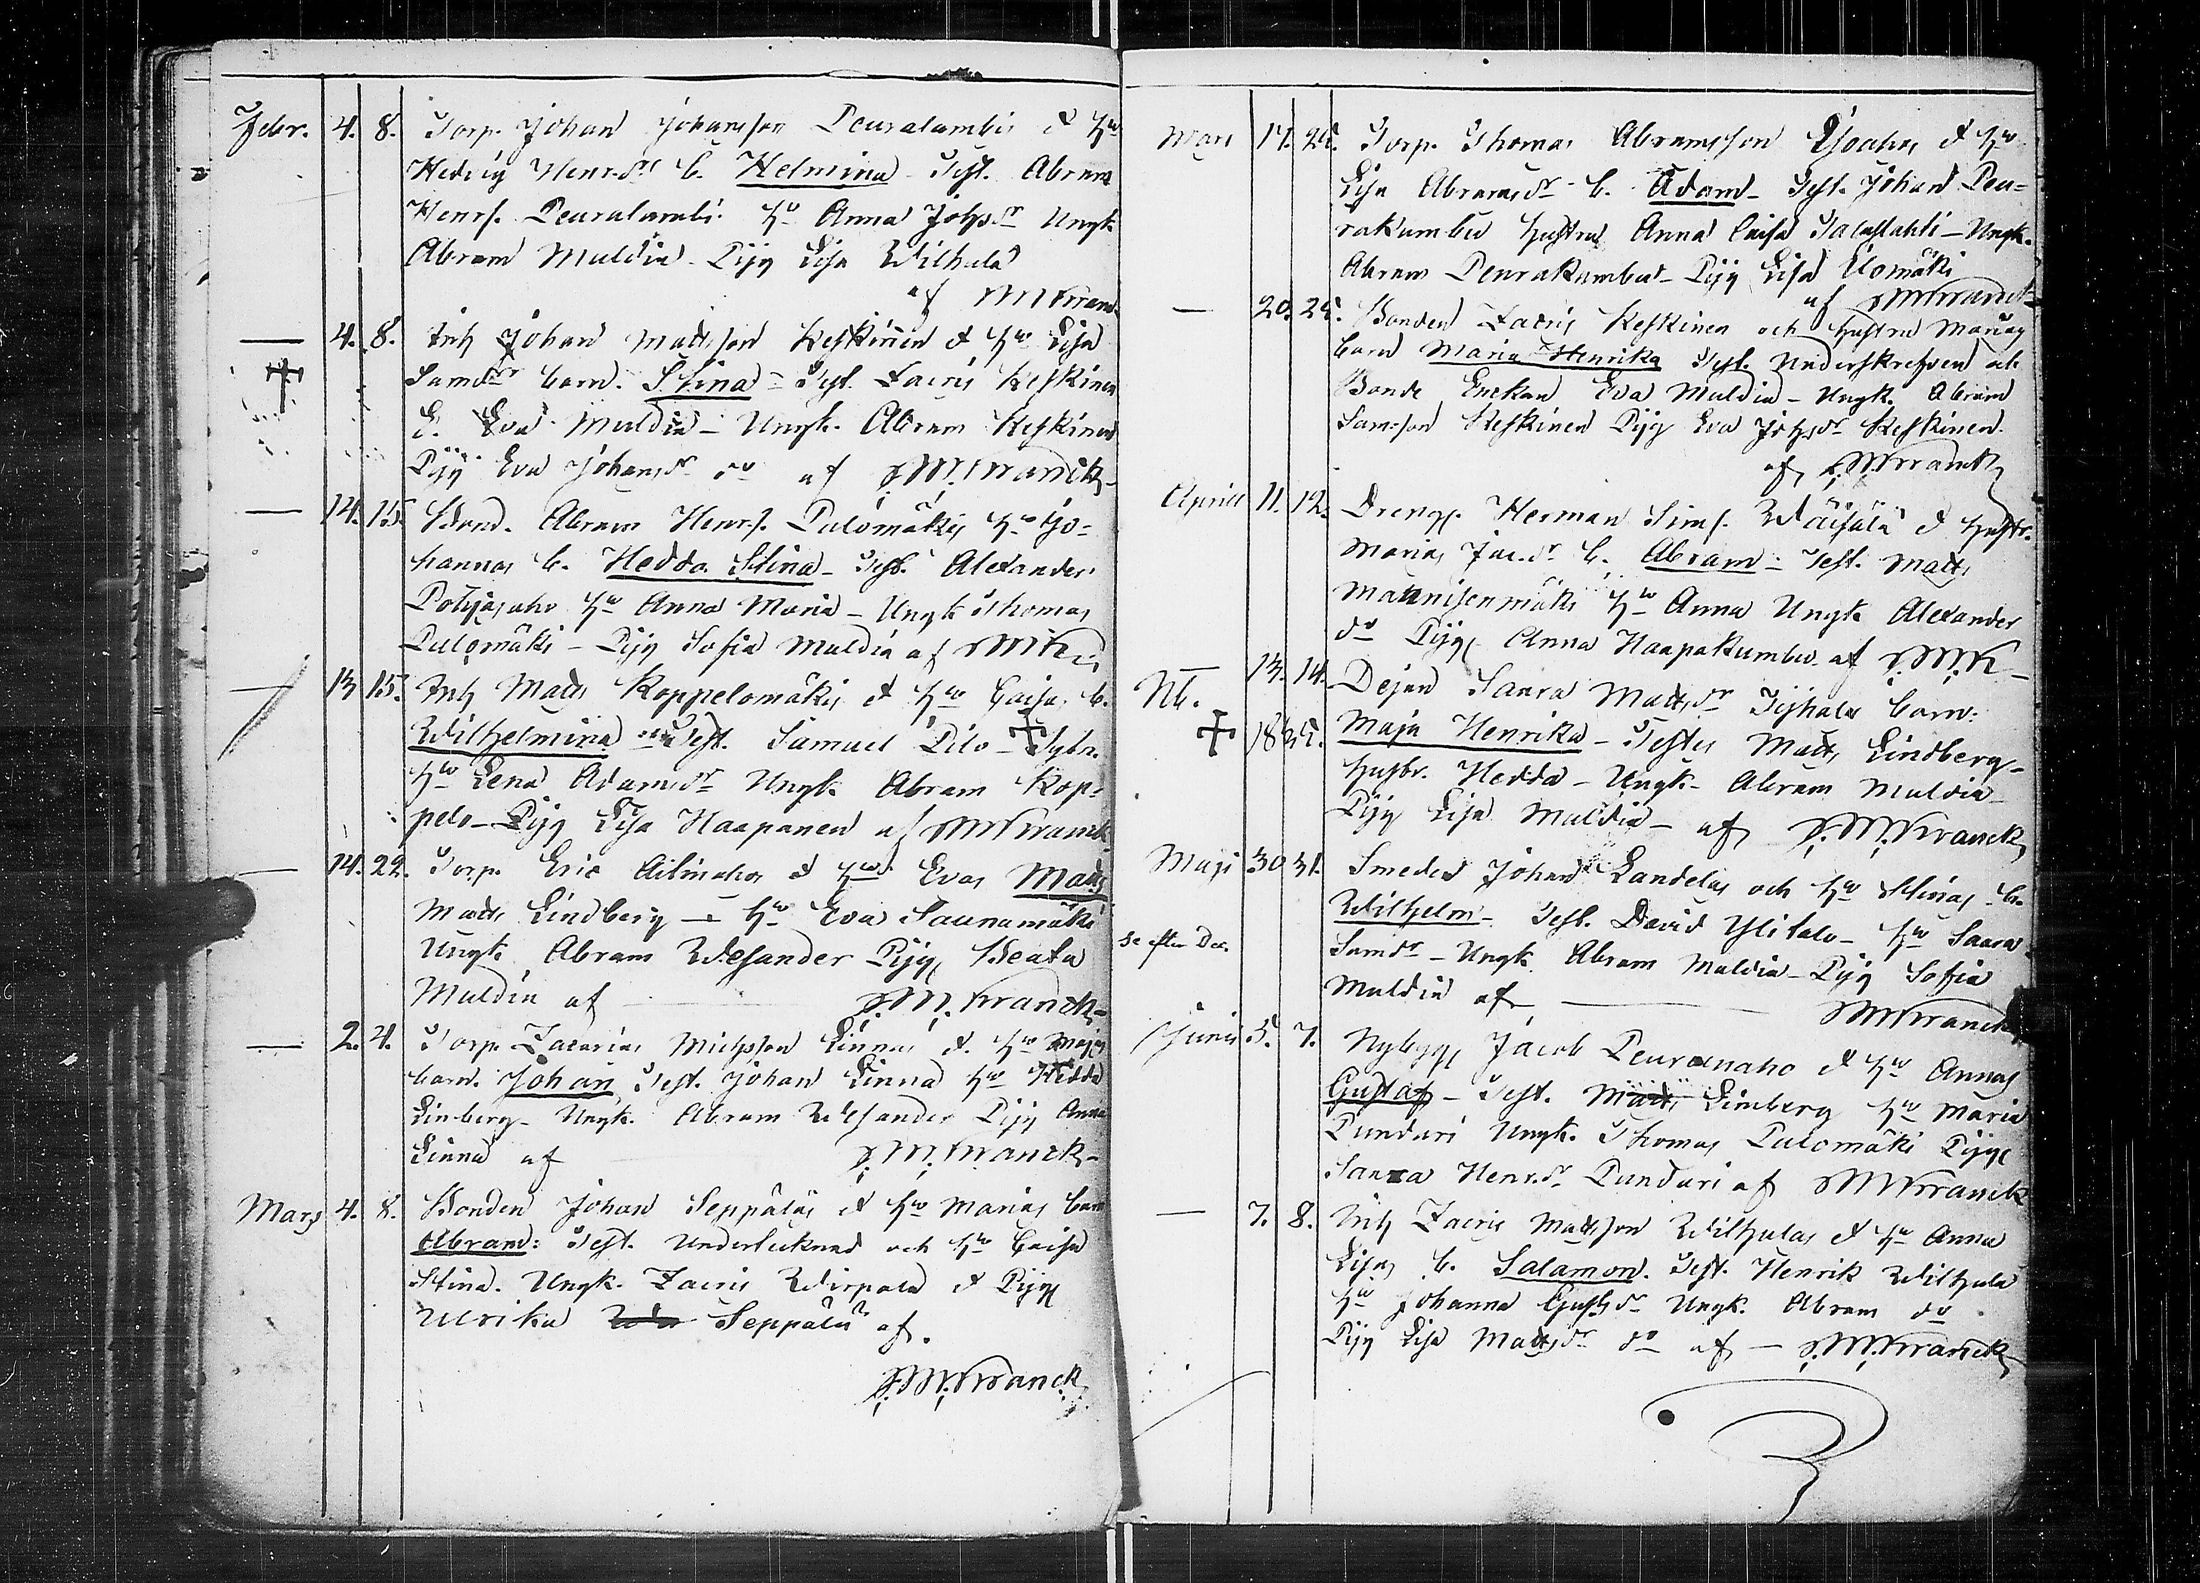 Febr. 4. 8. Torp. Johan Johansson Peuralambis & Hu
Hedvig Henr.dr b. Helmina - Test. Abram
Henrs. Peuralambi Hu Anna Johsdr Ungk
Abram Muldia - Pig Lisa Wilhula
af
— 4. 8. Inh Johan Mattsson Keskinen & Hu Lisa
Samdr barn. Stina - Test. Zacris Keskinen
E. Eva Muldia - Ungk. Abram Keskinen
Pig Eva Johansdr do af M. Kranck
— 14. 15. Bond. Abram Henrs. Pulomäkis Hu Jo=
hannas b. Hedda Stina - Test. Alexander
Hu Anna Maria - Ungk Thomas
Pulomäki - Pig Sofia Muldia af
— 13 15. Inh Matts Koppelomäkis & Hu Caisas b.
Wilhelmina Test. Samuel Pilo -
Hu Lena Adamsdr Ungk Abram Kop=
pelo - Pig Lisa Haapanen af M Kranck
— 14. 22. Torp. Eric & Hus Evas Matts
Matts Lindberg - Hu Eva Saunamäki
Ungk Abram Wesander Pig Beata
Muldia af M. Kranck
— 2. 4. Torp. Zacarias Michsson Linnas & Hu Majas
barn. Johan Test. Johan Linna Hu Hedda
Linberg - Ungk. Abram Wesander Pig Anna
Linna af M. Kranck
Mars 4. 8. Bonden Johan Seppäläs & Hu Marias barn
Abram: Test. Undertecknad och Hu Caisa
Stina. Ungk. Zacris Wirpala & Pig
Ulrika Seppälä af.
M. Kranck
Mars 17. 25. Torp. Thomas Abramsson & Hu
Lisa Abramsdr b. Adam - Test. Johan Peu=
rakumbu hustru Anna Caisa - Ungk.
Abram Peurakumbu - Pig Lisa Ilomäki
af M Kranck
— 20. 25. Bonden Zacris Keskinen och hustru Marias
barn Maria Henrika Test. Underskrefven och
Bonde Enckan Eva Muldia - Ungk. Abram
Samsson Keskinen Pig Eva Johsdr Keskinen.
af M. Kranck
April 11. 12. Drengs. Herman Sims. Wäisälä & Hustr.
Marias Jac.dr b. Abram - Test. Matts
Mannisenmäki Hu Anna Ungk Alexander
do Pig Anna Haapakumbu af M. K
— 13. 14. Dejan Saara Mattsdr barn:
Nb.
18 25. Maja Henrika - Testes Matts Lindberg -
Hustr. Hedda - Ungk - Abram Muldia
Pig Lisa Muldia - af M. Kranck
Maji 30 31. Smeden Johan Landelas och Hu Stinas b.
Wilhelm - Test. David Ylitalo - Hu Saara
se efter Dec.
Samdr - Ungk. Abram Muldia - Pig Sofia
Muldia af M Kranck
Junii 5. 7. Nybygg. Jacob Peuranaho & Hu Annas
Gustaf - Test. Matts Limberg Hu Maria
Punduri Ungk. Thomas Pulomäki Pig
Sanna Henr.dr Punduri af M Kranck
— 7. 8. Inh Zacris Mattsson Wilhulas & Hu Anna
Lisas b. Salamon. Test. Henrik Wilhula
Hu Johanna Gustsdr Ungk. Abram do
Pig Lisa Mattsdr do af - M. Kranck